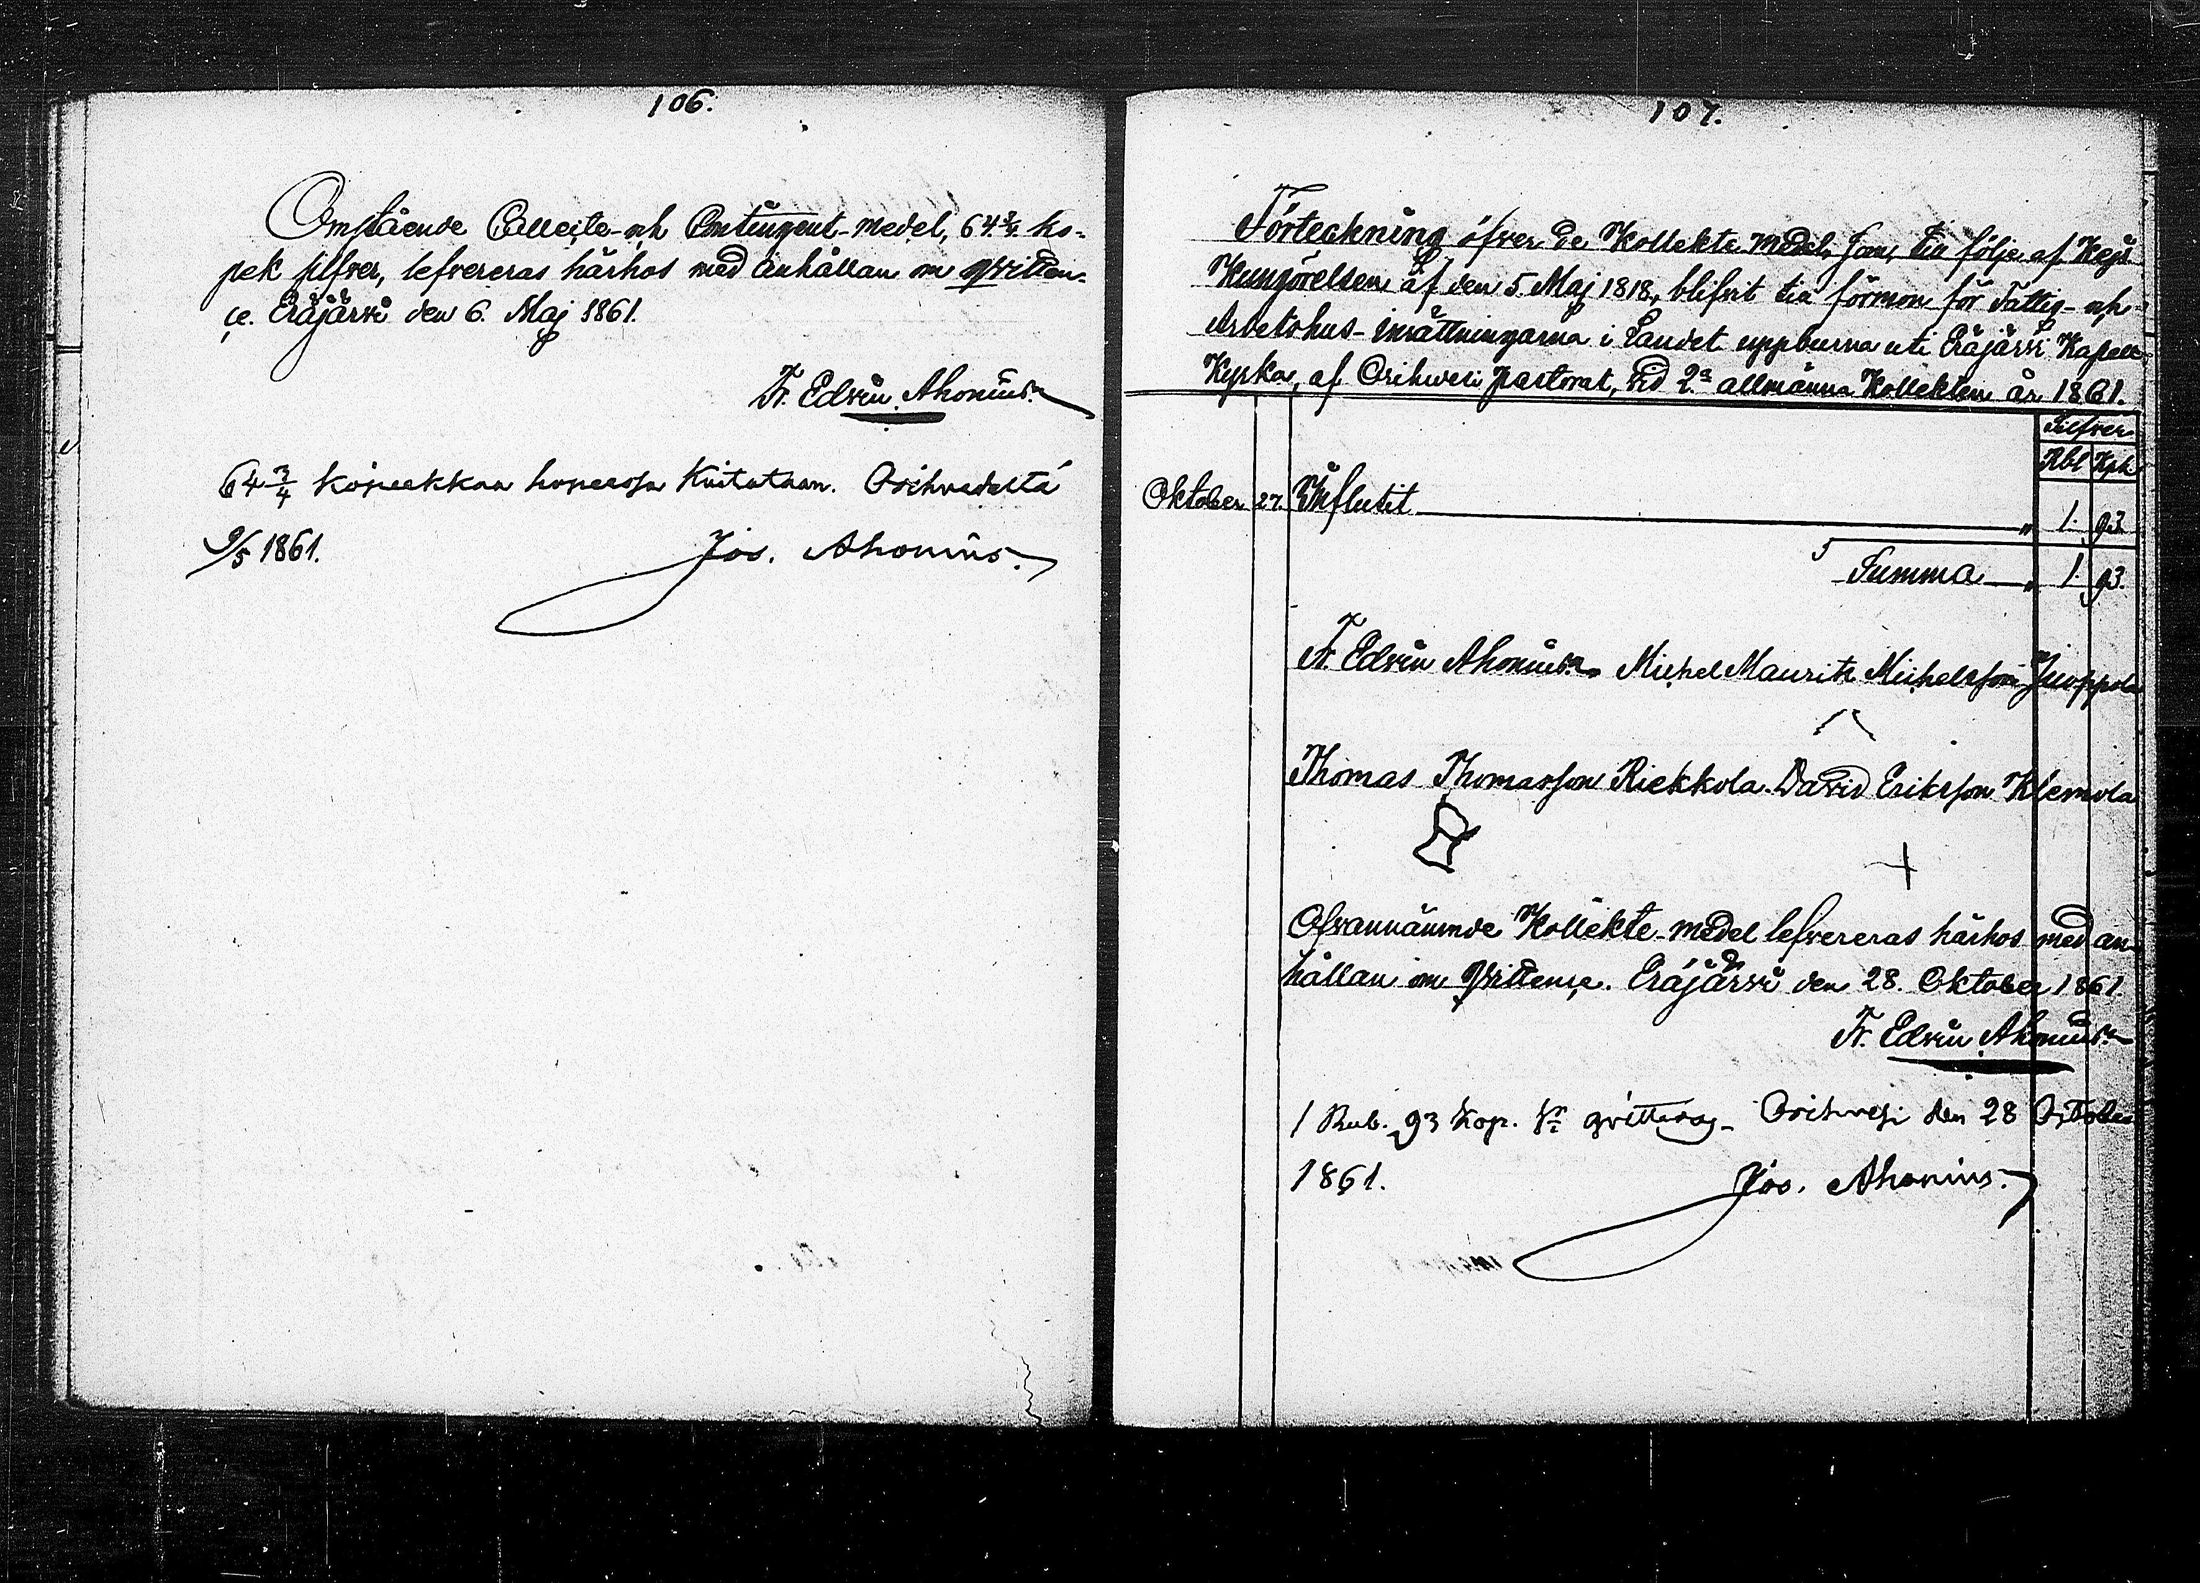 106.
Omstående Collecte- och Contingent-medel, 64 3/4 ko-
pek silfver, lefvereras härhos med anhållan om qvitten-
ce. Eräjärvi den 6. Maj 1861.
Fr. Edvin Ahonius.
64 3/4 kopeekkaa hopeassa kuitataan. Orihvedeltä
9/5 1861.
Jos. Ahonius.
107.
Förteckning öfver de Kollekte medel, som, till följe af Kejs
Kungörelsen af den 5. Maj 1818, blifvit till förmon för Fattig- och
Arbetshus-inrättningarna i Landet uppburna uti Eräjärvi Kapell
Kyrka, af Orihvesi pastorat, vid 2a allmänna Kollekten år 1861.
Silfver
Rbl Kpk
Oktober 27. Influtit " 1. 93.
Summa " 1. 93.
Fr. Edvin Ahonius. Michel Maurits Michelsson Juoppola
Thomas Thomasson Riekkola. David Eriksson Klemola
+
Ofvannämnde Kollekte-medel lefvereras härhos med an-
hållan om Qvittence. Eräjärvi den 28. Oktober 1861.
Fr. Edvin Ahonius.
1 Rub. 93 Kop. Sr qvitteras. Orihvesi den 28 October
1861.
Jos. Ahonius.